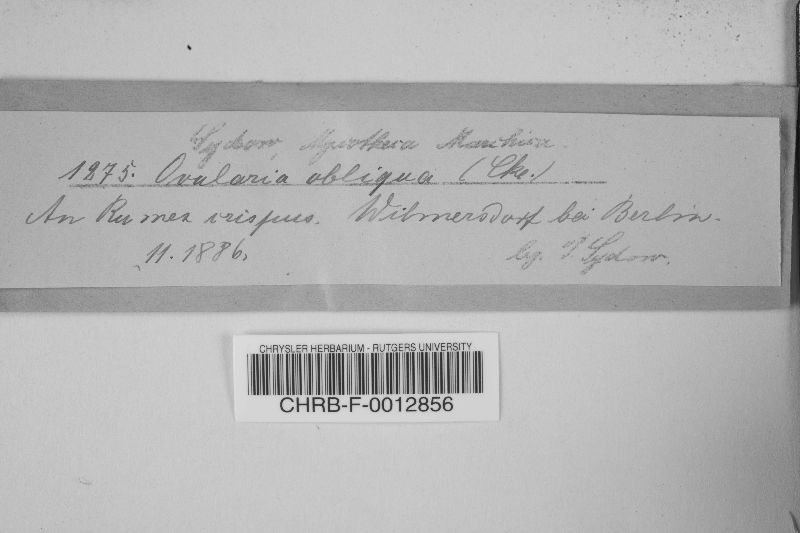 Sydow, Mycotheca Marchica.
1275. Ovularia obliqua (Cke.)
An Rumex crispus. Wilmersdorf bei Berlin.
11. 1886.
leg. P. Sydow.
CHRYSLER HERBARIUM - RUTGERS UNIVERSITY
CHRB-F-0012856